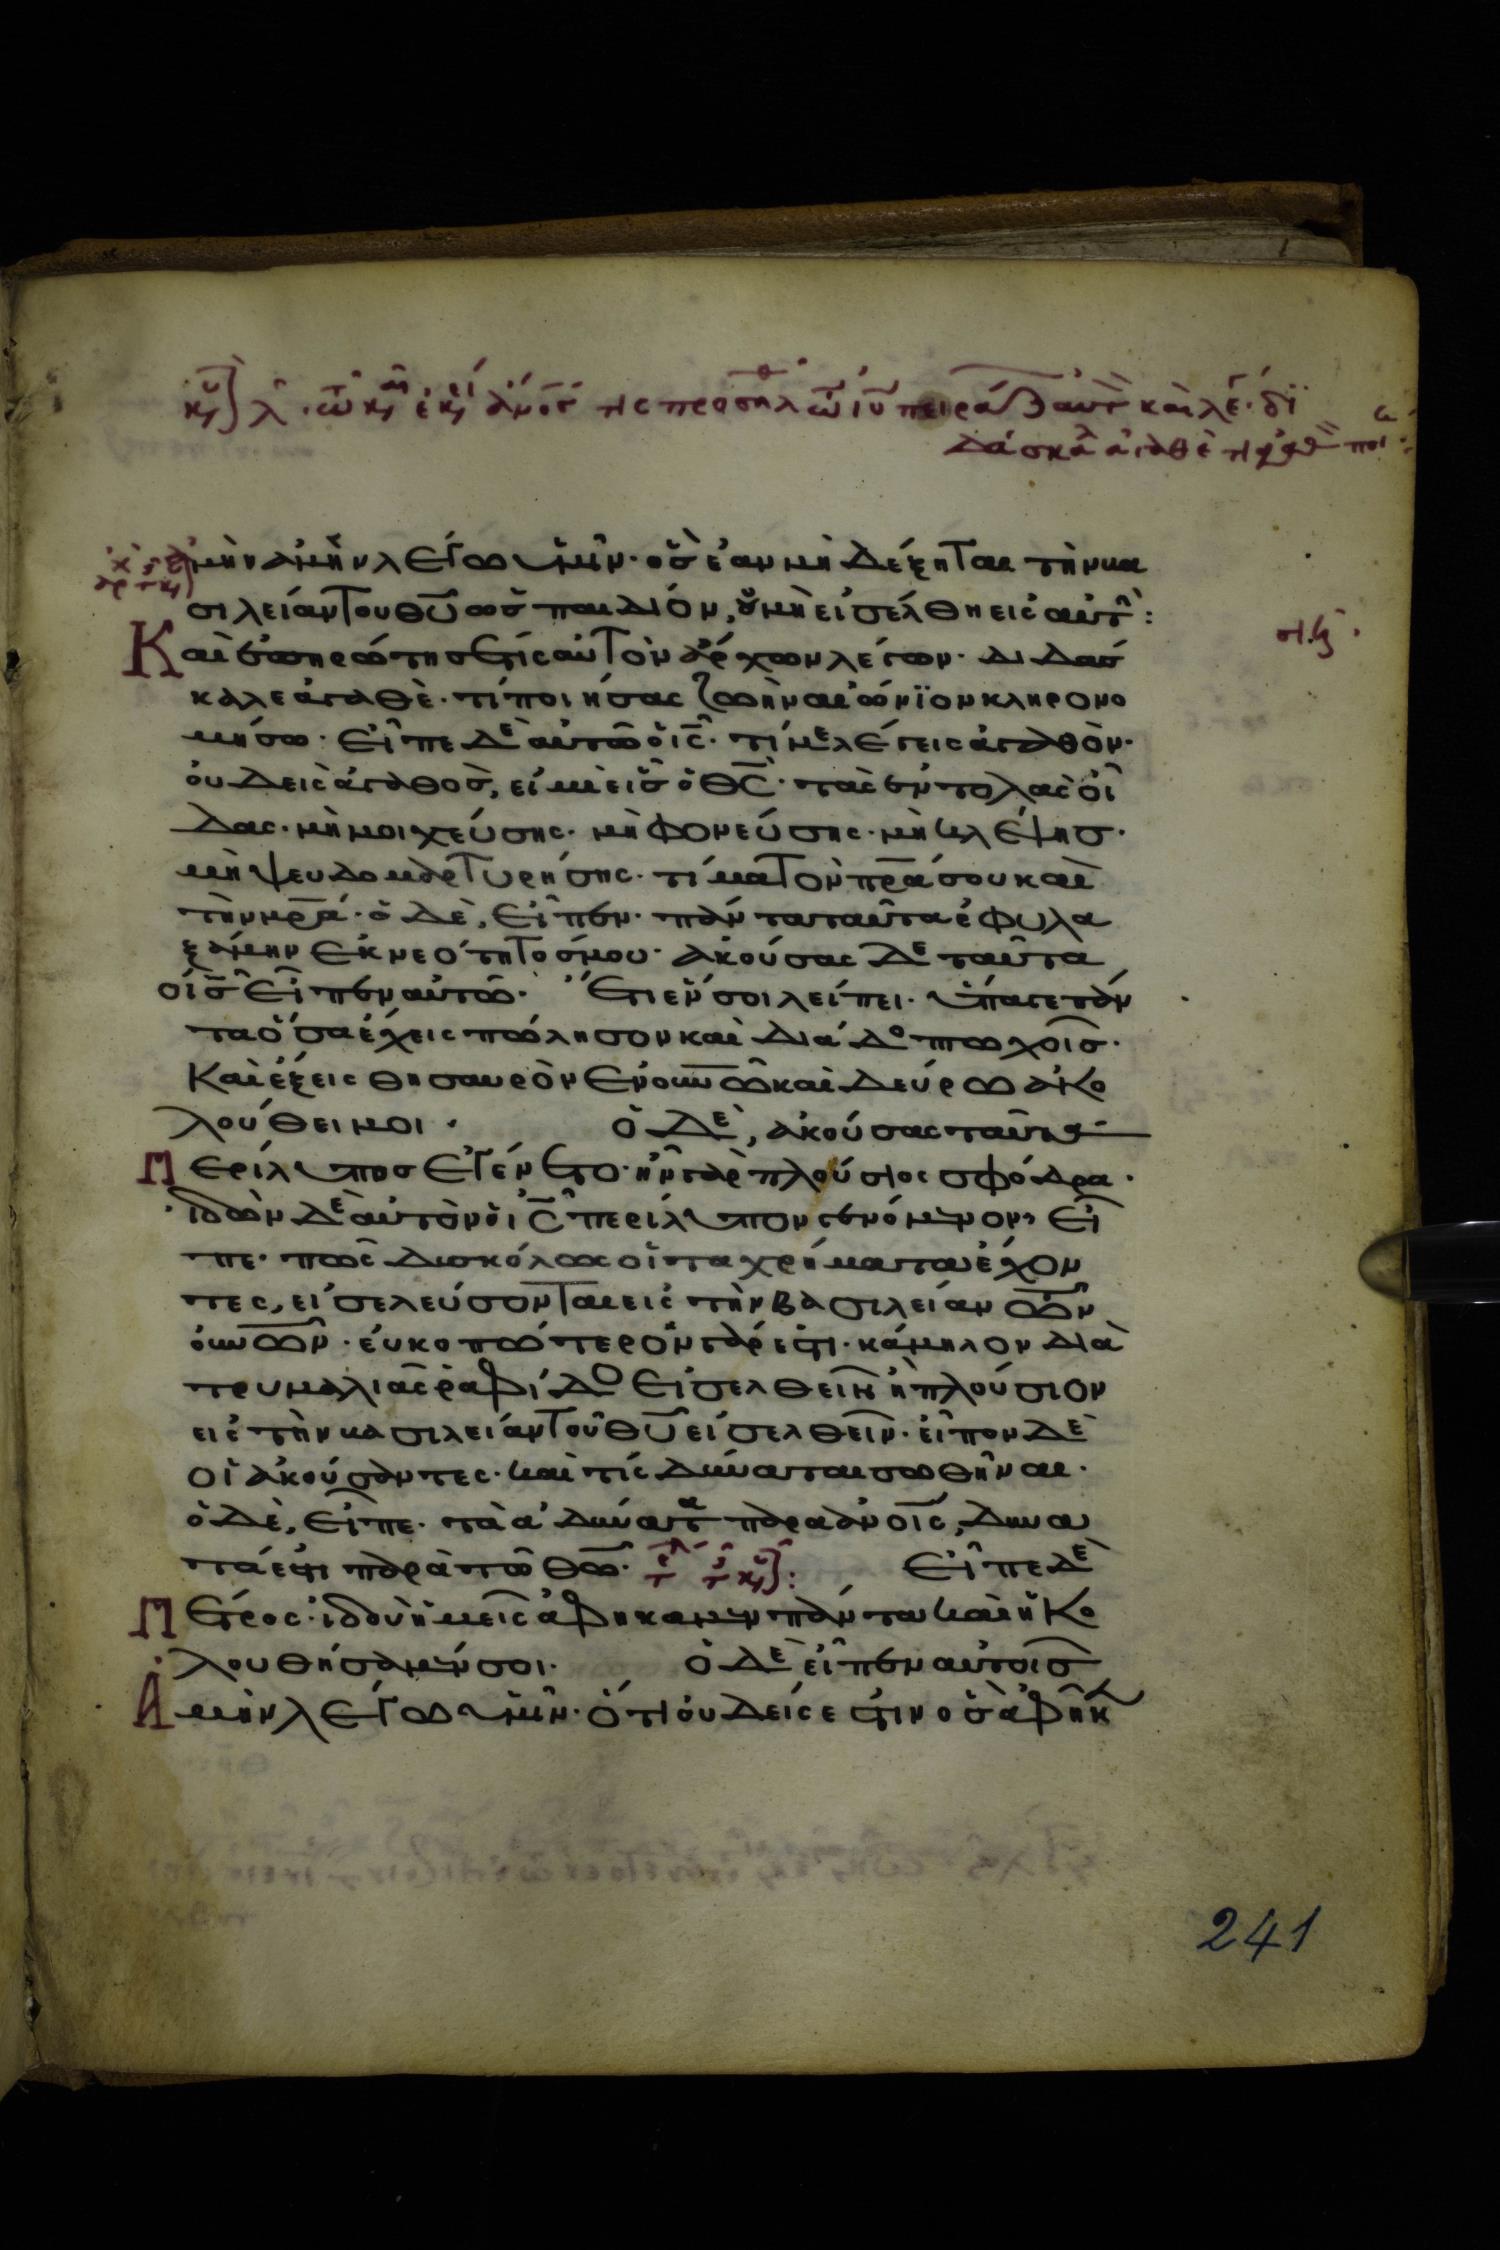 τις προσηλ τω ιυ πειρά αυτ και λε· δι
δάσκαλ αγαθὲ τι
ἀμὴν ἀμὴν λέγω ὑμῖν· ὃς ἐὰν μὴ δέξηται τὴν βα
σιλείαν τοῦ θῦ ὡς παιδίον, οὐ μὴ εἰσέλθῃ εἰς αὐτὴν:
Καὶ ἐπηρώτησέ τις αὐτὸν ἄρχων λέγων· διδάσ
καλε ἀγαθὲ· τί ποιήσας ζωὴν αἰώνϊον κληρονο
μήσω· εἶπε δὲ αὐτῶ ὁ ις· τί με λέγεις ἀγαθὸν·
οὐδεὶς ἀγαθὸς, εἰ μὴ εἷς ὁ θς· τὰς ἐντολὰς οἶ
δας· μὴ μοιχεύσης· μὴ φονεύσης· μὴ κλέψης·
μὴ ψευδομαρτυρήσης· τίμα τὸν πρα σου καὶ
τὴν μρα· ὁ δὲ, εἶπεν· πάντα ταῦτα ἐφυλα
ξάμην ἐκ νεότητός μου· ἀκούσας δὲ ταῦτα
ὁ ις εἶπεν αὐτῶ· Ἔτι ἕν σοι λείπει· ὕπαγε πάν
τα ὅσα ἔχεις πώλησον καὶ διάδο πτωχοῖς·
Καὶ ἕξεις θησαυρὸν ἐν οὐνω καὶ δεύρω ἀκο
λούθει μοι· ὁ δὲ, ἀκούσας ταῦτα
Περίλυπος ἐγένετο· ἦν γὰρ πλούσιος σφόδρα·
ἰδὼν δὲ αὐτὸν ὁ ις περίλυπον γενόμενον, εἶ
πε· πῶς δισκόλως οἱ τὰ χρήματα ἔχον
τες, εἰσελεύσονται εἰς τὴν βασιλείαν τῶν
οὐνων· εὐκοπώτερον γάρ ἐστι· κάμηλον διὰ
τρυμαλιᾶς ῥαφίδο εἰσελθεῖν ἢ πλούσιον
εἰς τὴν βασιλείαν τοῦ θῦ εἰσελθεῖν· εἶπον δὲ
οἱ ἀκούσαντες· καὶ τίς δύναται σωθῆναι·
ὁ δὲ, εἶπε· τὰ ἀδύνατα παρὰ ἀνοις, δυνα
τά ἐστι παρὰ τῶ θω· Εἶπε δὲ
Πέτρος· ἰδοὺ ἡμεῖς ἀφήκαμεν πάντα καὶ ἠκο
λουθήσαμέν σοι· ὁ δὲ εἶπεν αὐτοῖς
Ἀμὴν λέγω ὑμῖν· ὅτι οὐδείς ἐστιν ὃς ἀφῆκ
241